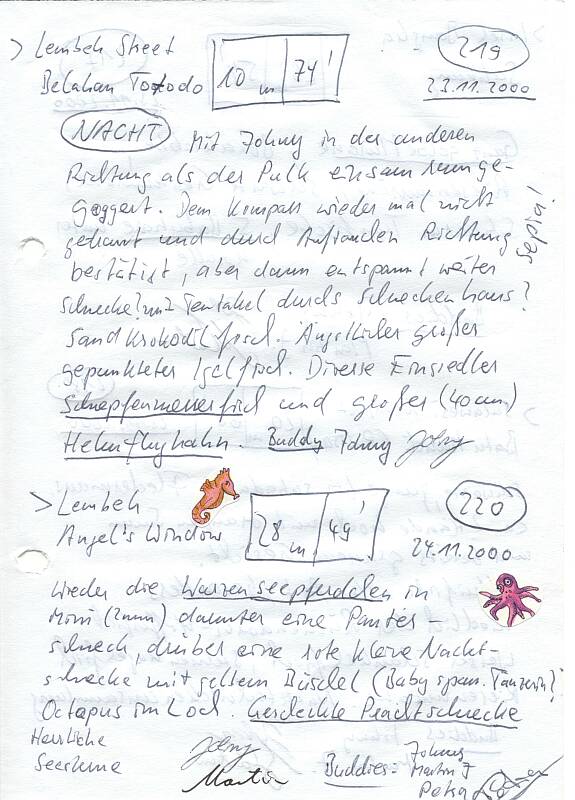 > Lembeh Street
10 m 74'
219
Belahan Totodo
23.11.2000
NACHT Mit Johny in der anderen
Richtung als der Pulk einsam rumge-
goggert. Dem Kompass wieder mal nicht
getraut und durch Auftauchen Richtung
Sepia!
bestätigt, aber dann entspannt weiter
Schnecke? mit Tentakel durchs Schneckenhaus?
Sandkrokodilfisch. Angelköder großer
gepunkteter Igelfisch. Diverse Einsiedler
Schnepfenmesserfisch und großer (40cm)
Helmflughahn. Buddy Johny Johny
> Lembeh
28 m 49'
220
Angel's Window
24.11.2000
Wieder die Warzenseepferdchen in
Mini (2mm) darunter eine Panter-
schneck, drüber eine rote kleine Nacht-
schnecke mit gelbem Büschel (Baby span. Tänzerin?
Octapus im Loch. Gefleckte Prachtschnecke
Herrliche
Seesterne
Johny
Martin
Buddies - Johny
Martin F
Petra